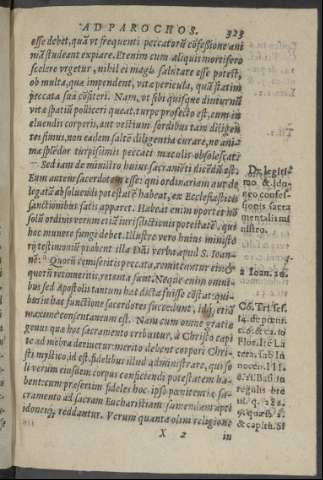 AD PAROCHOS. 323
esse debet, quã vt frequenti peccatorũ cõfessione ani
mã studeant expiare. Etenim cum aliquis mortifero
scelere vrgetur, nihil ei magis salutare esse potest,
ob multa, quæ impendent, vitæ pericula, quã statim
peccata sua cõfiteri. Nam, vt sibi quisque diuturnũ
vitæ spatiũ polliceri queat, turpe profecto est, cum in
eluendis corporis, aut vestium sordibus tam diligen
tes simus, non eadem saltẽ diligentia curare, no ani-
mæ splẽdor turpissimis peccati maculis obsolescat.
Sed iam de ministro huius sacramẽti dicẽdũ est.
Eum autem sacerdotem esse: qui ordinariam aut de
legatã absoluendi potestatẽ habeat, ex Ecclesiasticis
sanctionibus satis apparet. Habeat enim oportet nõ
solũ ordinis verum etiã iurisdictionis potestatẽ, qui
hoc munere fungi debet. Illustre vero huius ministe
rij testimoniũ præbent illa Dñi verba apud S. Ioan-
nẽ: Quorũ remiseritis peccata, remittentur eis: &
quorũ retinueritis, retenta sunt. Neque enim omni-
bus sed Apostolis tantum hæc dicta fuisse cõstat: qui-
bus in hac functione sacerdotes succedunt, idq; etiã
maxime consentaneum est. Nam cum omne gratiæ
genus quæ hoc sacramento tribuitur, à Christo capi
te ad mẽbra deriuetur: merito debent corpori Chri-
sti mystico. id est, fidelibus illud administrare, qui so
li verum eiusdem corpus conficiendi potestatem ha-
bent: cum præsertim fideles hoc ipso pœnitentiæ sa-
cramento ad sacram Eucharistiam sumendam apti
idoneiq; reddantur. Verum quanta olim religione
X 2 in
De legiti
mo & ido
neo confes-
sionis sacra
mentalis mi
nistro.
Ioan. 20.